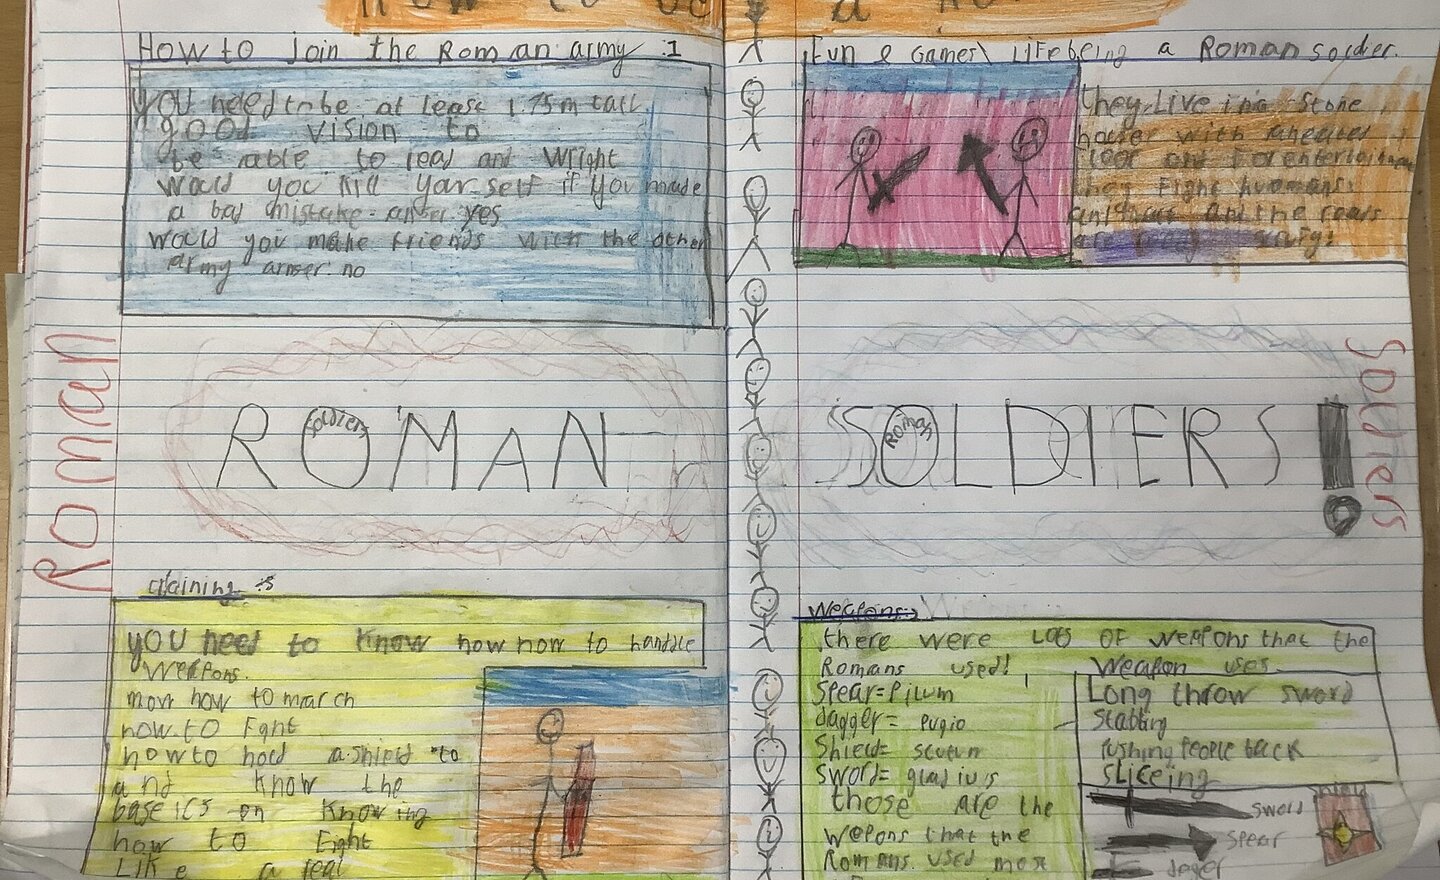 How to
a
How to join the Roman army :1
you need to be at least 1.75m tall
good vision to
be able to read and wright
would you kill your self if you made
a bad mistake = anser yes
would you make friends with the other
army anser: no
Fun & Games\ Life being a Roman soldier.
they Live in a Stone
house with a heated
floor and for entertainment
they Fight humans
animals and the
are
Roman
ROMAN
Soldiers
SOLDIERS!
Roman
Soldiers
training :s
you need to know how how to handle
weapons.
how to march
how to Fight
how to hold a shield to
and know the
baseics on knowing
how to Fight
Like a real
Weapons:
there were Lots OF weapons that the
Romans used!
Spear= Pilum
dagger= Pugio
Shield= scutum
Sword= gladius
those are the
wepons that the
Romans used most
Weapon uses.
Long throw sword
Stabbing
Pushing People back
sliceing
sword
spear
dager